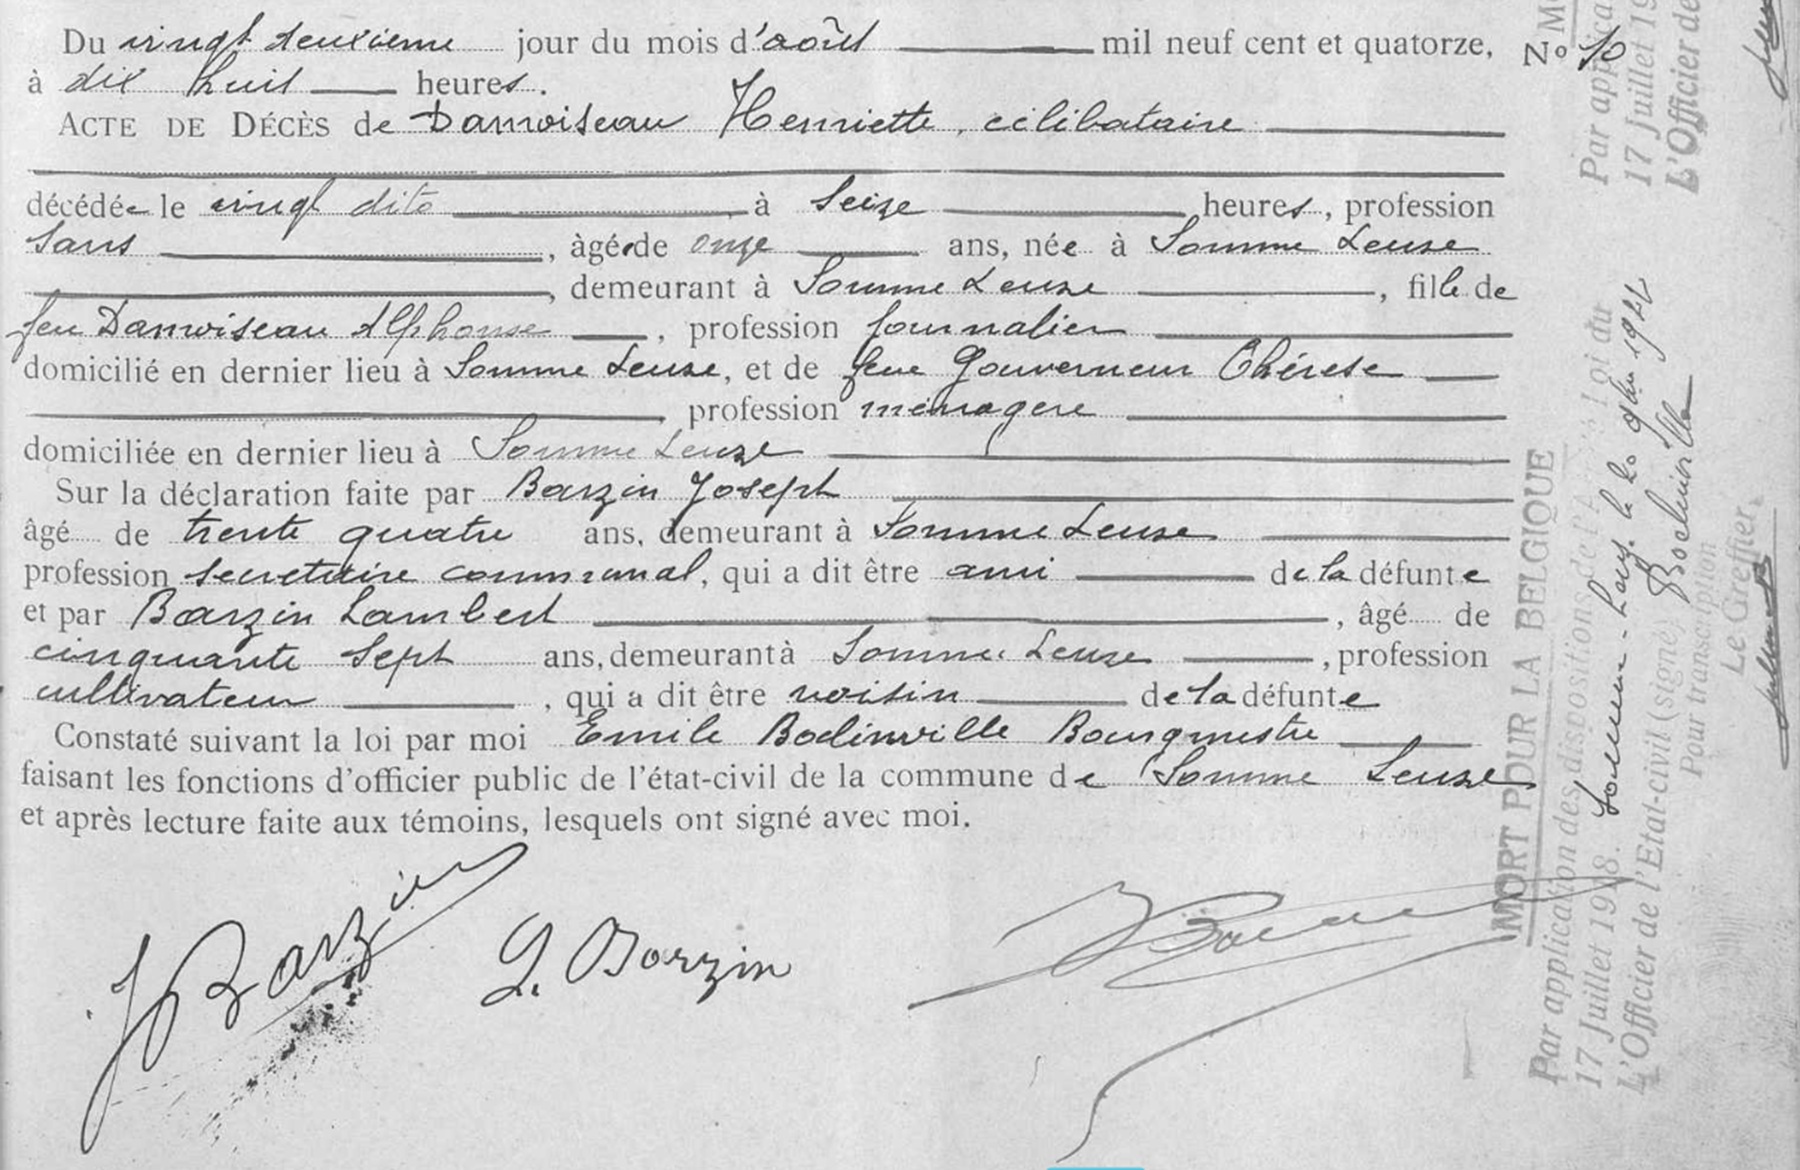 Du vingt deuxième jour du mois d'août mil neuf cent et quatorze, N° 10
à dix huit heures.
ACTE DE DÉCÈS de Damoiseau Henriette, célibataire
décédée le vingt dito à seize heures, profession
sans, âgé de onze ans, née à Somme Leuze
, demeurant à Somme Leuze, fille de
feu Damoiseau Alphonse, profession journalier
domicilié en dernier lieu à Somme Leuze, et de feue Gouverneur Thérèse
profession ménagère
domiciliée en dernier lieu à Somme Leuze
Sur la déclaration faite par Barzin Joseph
âgé de trente quatre ans, demeurant à Somme Leuze
profession secretaire communal, qui a dit être ami de la défunte
et par Barzin Lambert, âgé de
cinquante sept ans, demeurant à Somme Leuze, profession
cultivateur, qui a dit être voisin de la défunte
Constaté suivant la loi par moi Emile Bodinville Bourgmestre
faisant les fonctions d'officier public de l'état-civil de la commune de Somme Leuze
et après lecture faite aux témoins, lesquels ont signé avec moi.
J Barzin
L. Barzin
Par applica
17 Juillet 19
L'Officier de
MORT POUR LA BELGIQUE
Par application des dispositions de l' loi du
17 Juillet 1918. Somme-Leuze le 20
L'Officier de l'Etat-civil (signé) Bodinville
Pour transcription
Le Greffier,